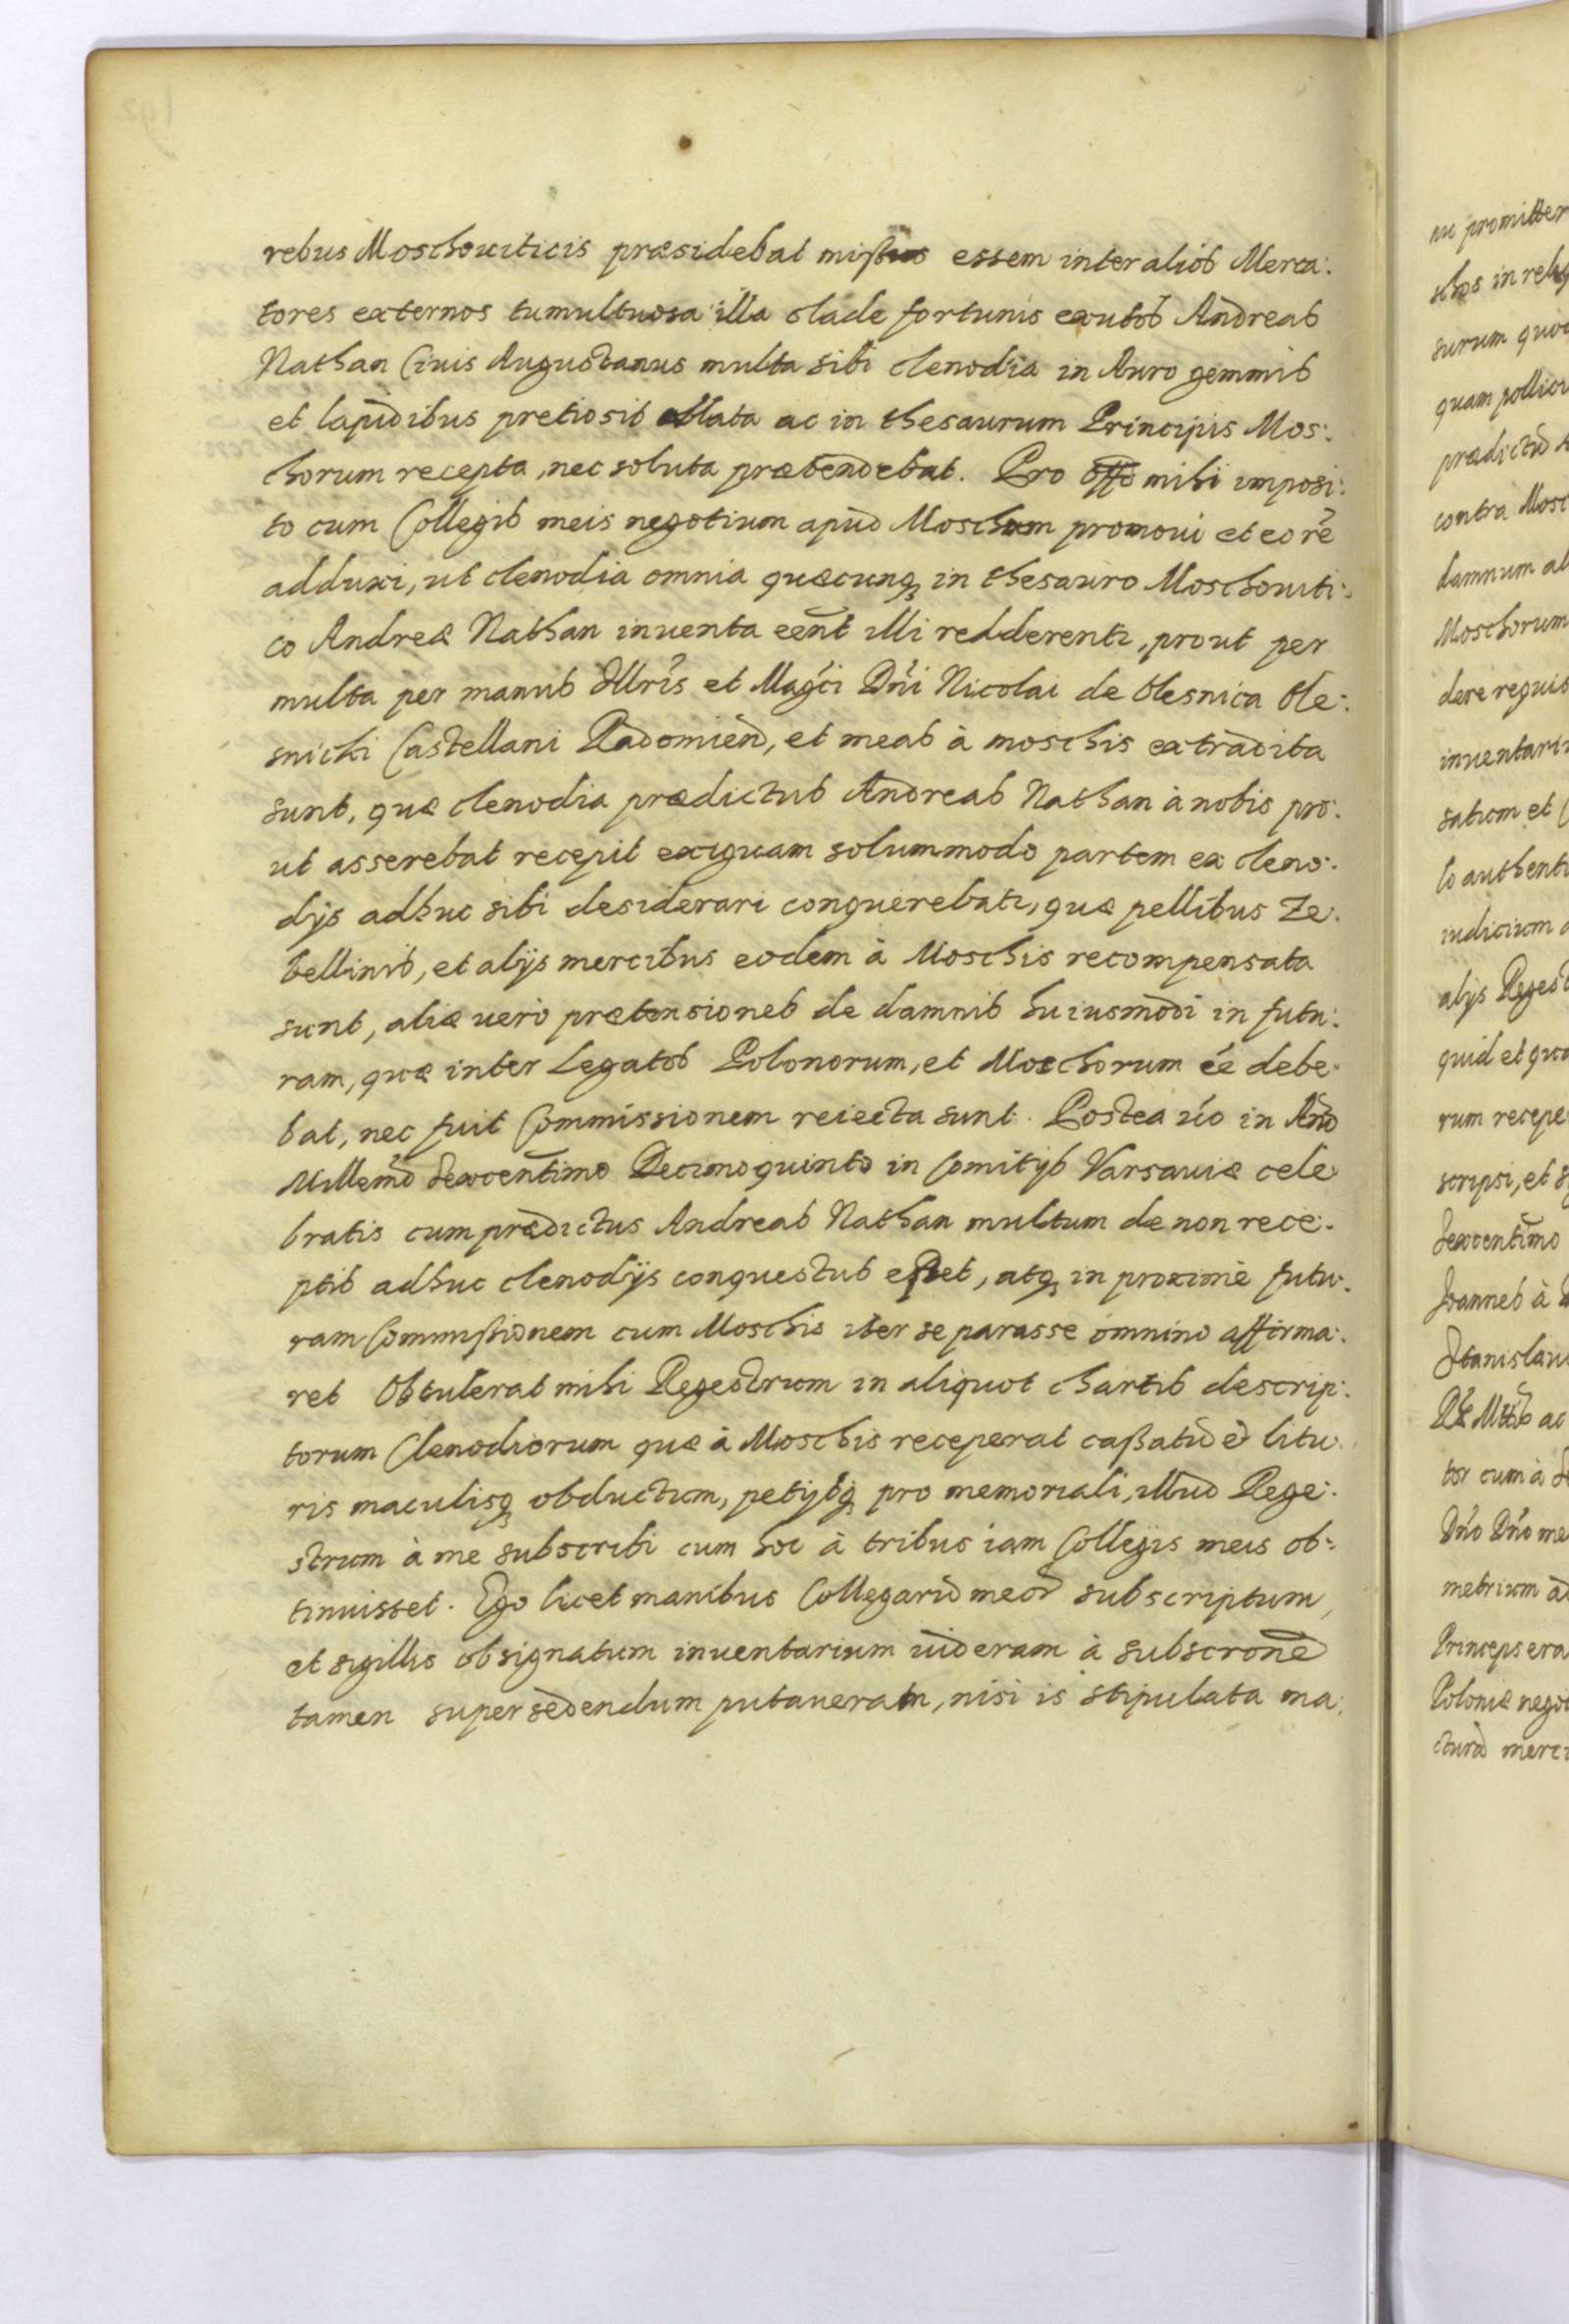 rebus Moschouiticis præsidebat mißus essem inter aliòs Merca:
tores externos tumultuosa illa clade fortunis exutos Andreas
Nathan Ciuis Augustanus multa sibi clenodia in Auro gemmis
et lapidibus pretiosis ablata ac in thesaurum Principis Mos:
chorum recepta, nec soluta prætendebat. Pro offo mihi imposi:
to cum Collegis meis negotium apud Moschum promoui et eo rē
adduxi, ut clenodia omnia quæcunq in thesauro Moschouiti:
co Andreæ Nathan inuenta eent illi redderentr, prout per
multa per manus Illris et Magci Dni Nicolai de Olesnica Ole:
snicki Castellani Radomien, et meas à moschis extradita
sunt, quæ clenodia prædictus Andreas Nathan à nobis pro:
ut asserebat recepit exiguam solummodo partem ex cleno:
dijs adhuc sibi desiderari conquerebatr, quæ pellibus Ze:
bellinis, et alijs mercibus eodem à Moschis recompensata
sunt, aliæ uerò prætensiones de damnis huiusmodi in futu:
ram, quæ inter Legatos Polonorum, et Moschorum ēē debe:
bat, nec fuit Commissionem reiecta sunt. Postea uo in Ano
Millemo Sexcentimo Decimoquinto in Comitijs Varsauiæ cele:
bratis cum prædictus Andreas Nathan multum de non rece:
ptis adhuc clenodijs conquestus eßet, atq in proximè futu:
ram Commißionem cum Moschis iter se parasse omnino affirma:
ret Obtulerat mihi Regestrum in aliquot chartis descrip:
torum Clenodiorum quæ à Moschis receperat caßatū et litu:
ris maculisq obductum, petijtq pro memoriali, illud Rege:
strum à me subscribi cum hoc à tribus iam Collegijs meis ob:
tinuisset. Ego licet manibus Collegarū meor subscriptum,
et sigillis obsignatum inuentarium uideram à subscrone
tamen supersedendum putaueram, nisi is stipulata ma: